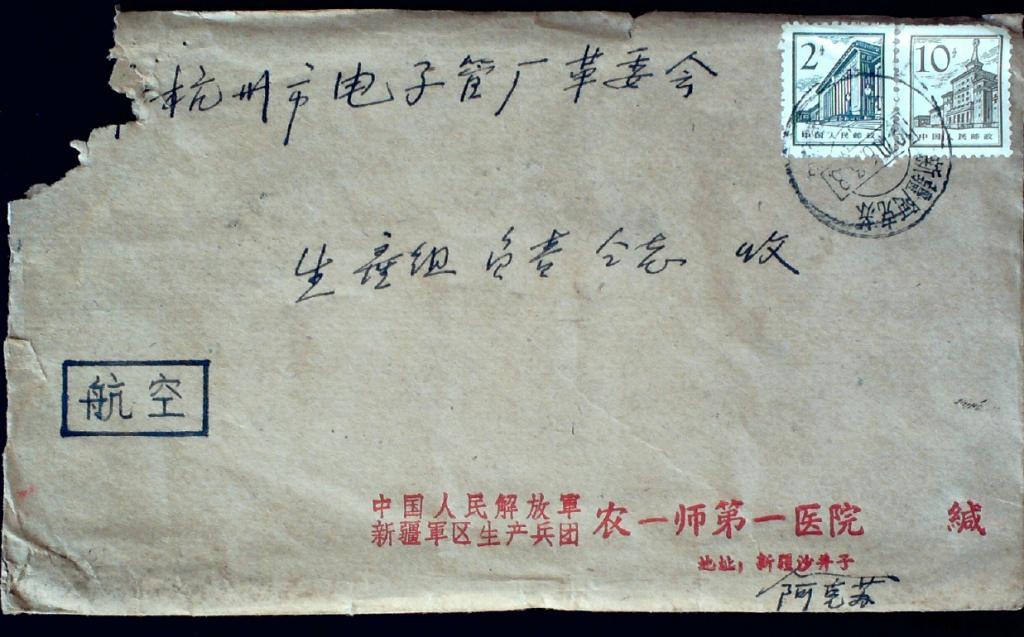 杭州市电子管厂革委会
2分
10分
中国人民邮政
中国人民邮政
新疆阿克苏
生产组 负责同志 收
航空
中国人民解放軍
新疆軍区生产兵团
农一师第一医院 緘
地址：新疆沙井子
阿克苏